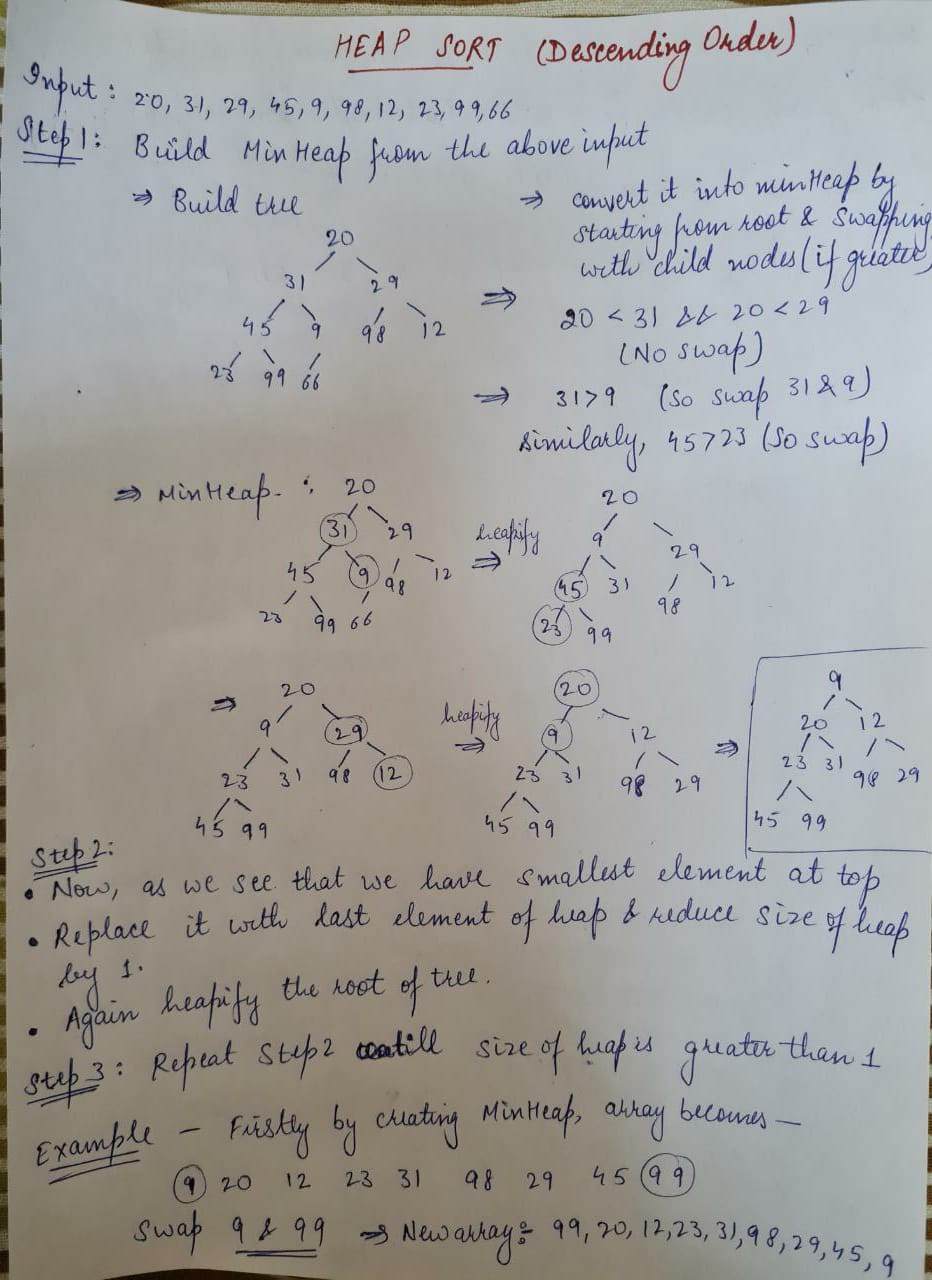 HEAP SORT (Descending Order)
Input: 20, 31, 29, 45, 9, 98, 12, 23, 99, 66
Step 1: Build Min Heap from the above input
⇒ Build tree
20
31 29
45 9 98 12
23 99 66
⇒ convert it into minHeap by
starting from root & swapping
with child nodes (if greater)
⇒ 20 < 31 && 20 < 29
(No swap)
⇒ 31>9 (So swap 31 & 9)
Similarly, 45>23 (So swap)
⇒ MinHeap - :
20
31 29
45 9 98 12
23 99 66
heapify ⇒
20
9 29
45 31 98 12
23 99
⇒
20
9 29
23 31 98 12
45 99
heapify ⇒
20
9 12
23 31 98 29
45 99
⇒
9
20 12
23 31 98 29
45 99
Step 2:
• Now, as we see that we have smallest element at top
• Replace it with last element of heap & reduce size of heap
by 1.
• Again heapify the root of tree.
Step 3: Repeat Step2 till size of heap is greater than 1
Example - Firstly by creating MinHeap, array becomes —
9 20 12 23 31 98 29 45 99
Swap 9 & 99 ⇒ New array : 99, 20, 12, 23, 31, 98, 29, 45, 9